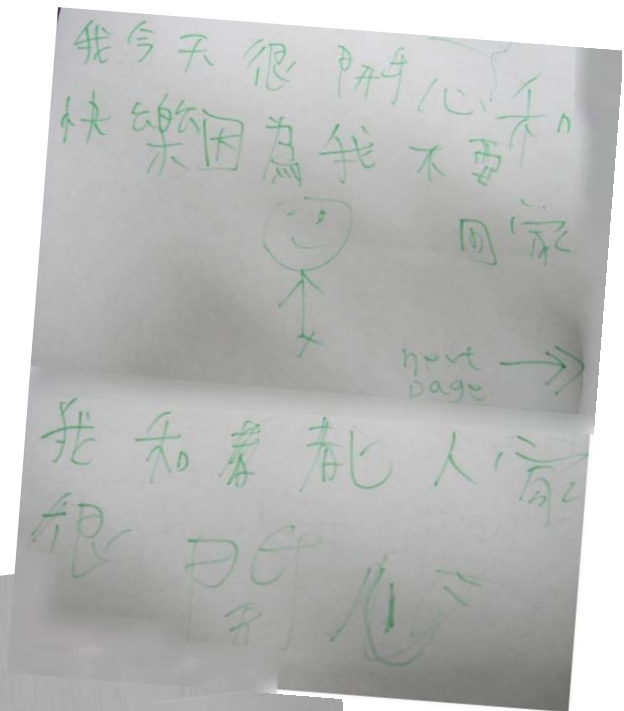 我今天很開心和
快樂因為我不要
回家
next
page
我和 人家
很開心